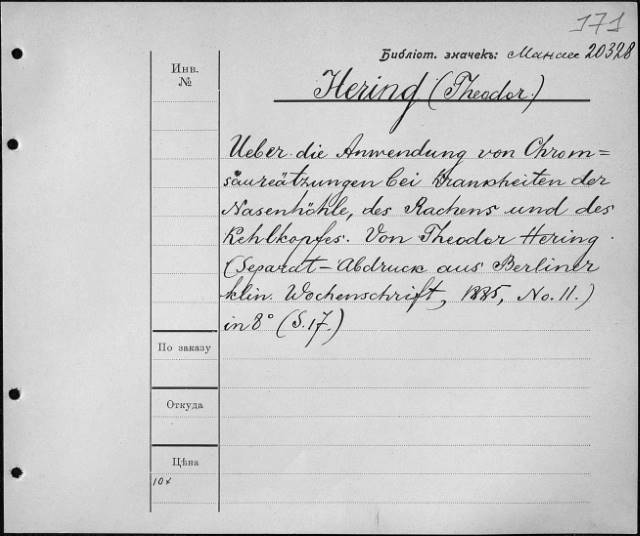 171
Библіот. значекъ: Манасс 20328
Инв. №
Hering (Theodor.)
Ueber die Anwendung von Chrom=
säureätzungen bei Krankheiten der
Nasenhöhle, des Rachens und des
Kehlkopfes. Von Theodor Hering.
(Separat-Abdruck aus Berliner
klin. Wochenschrift, 1885, No. 11.)
in 8° (S. 17.)
По заказу
Откуда
Цѣна
10x